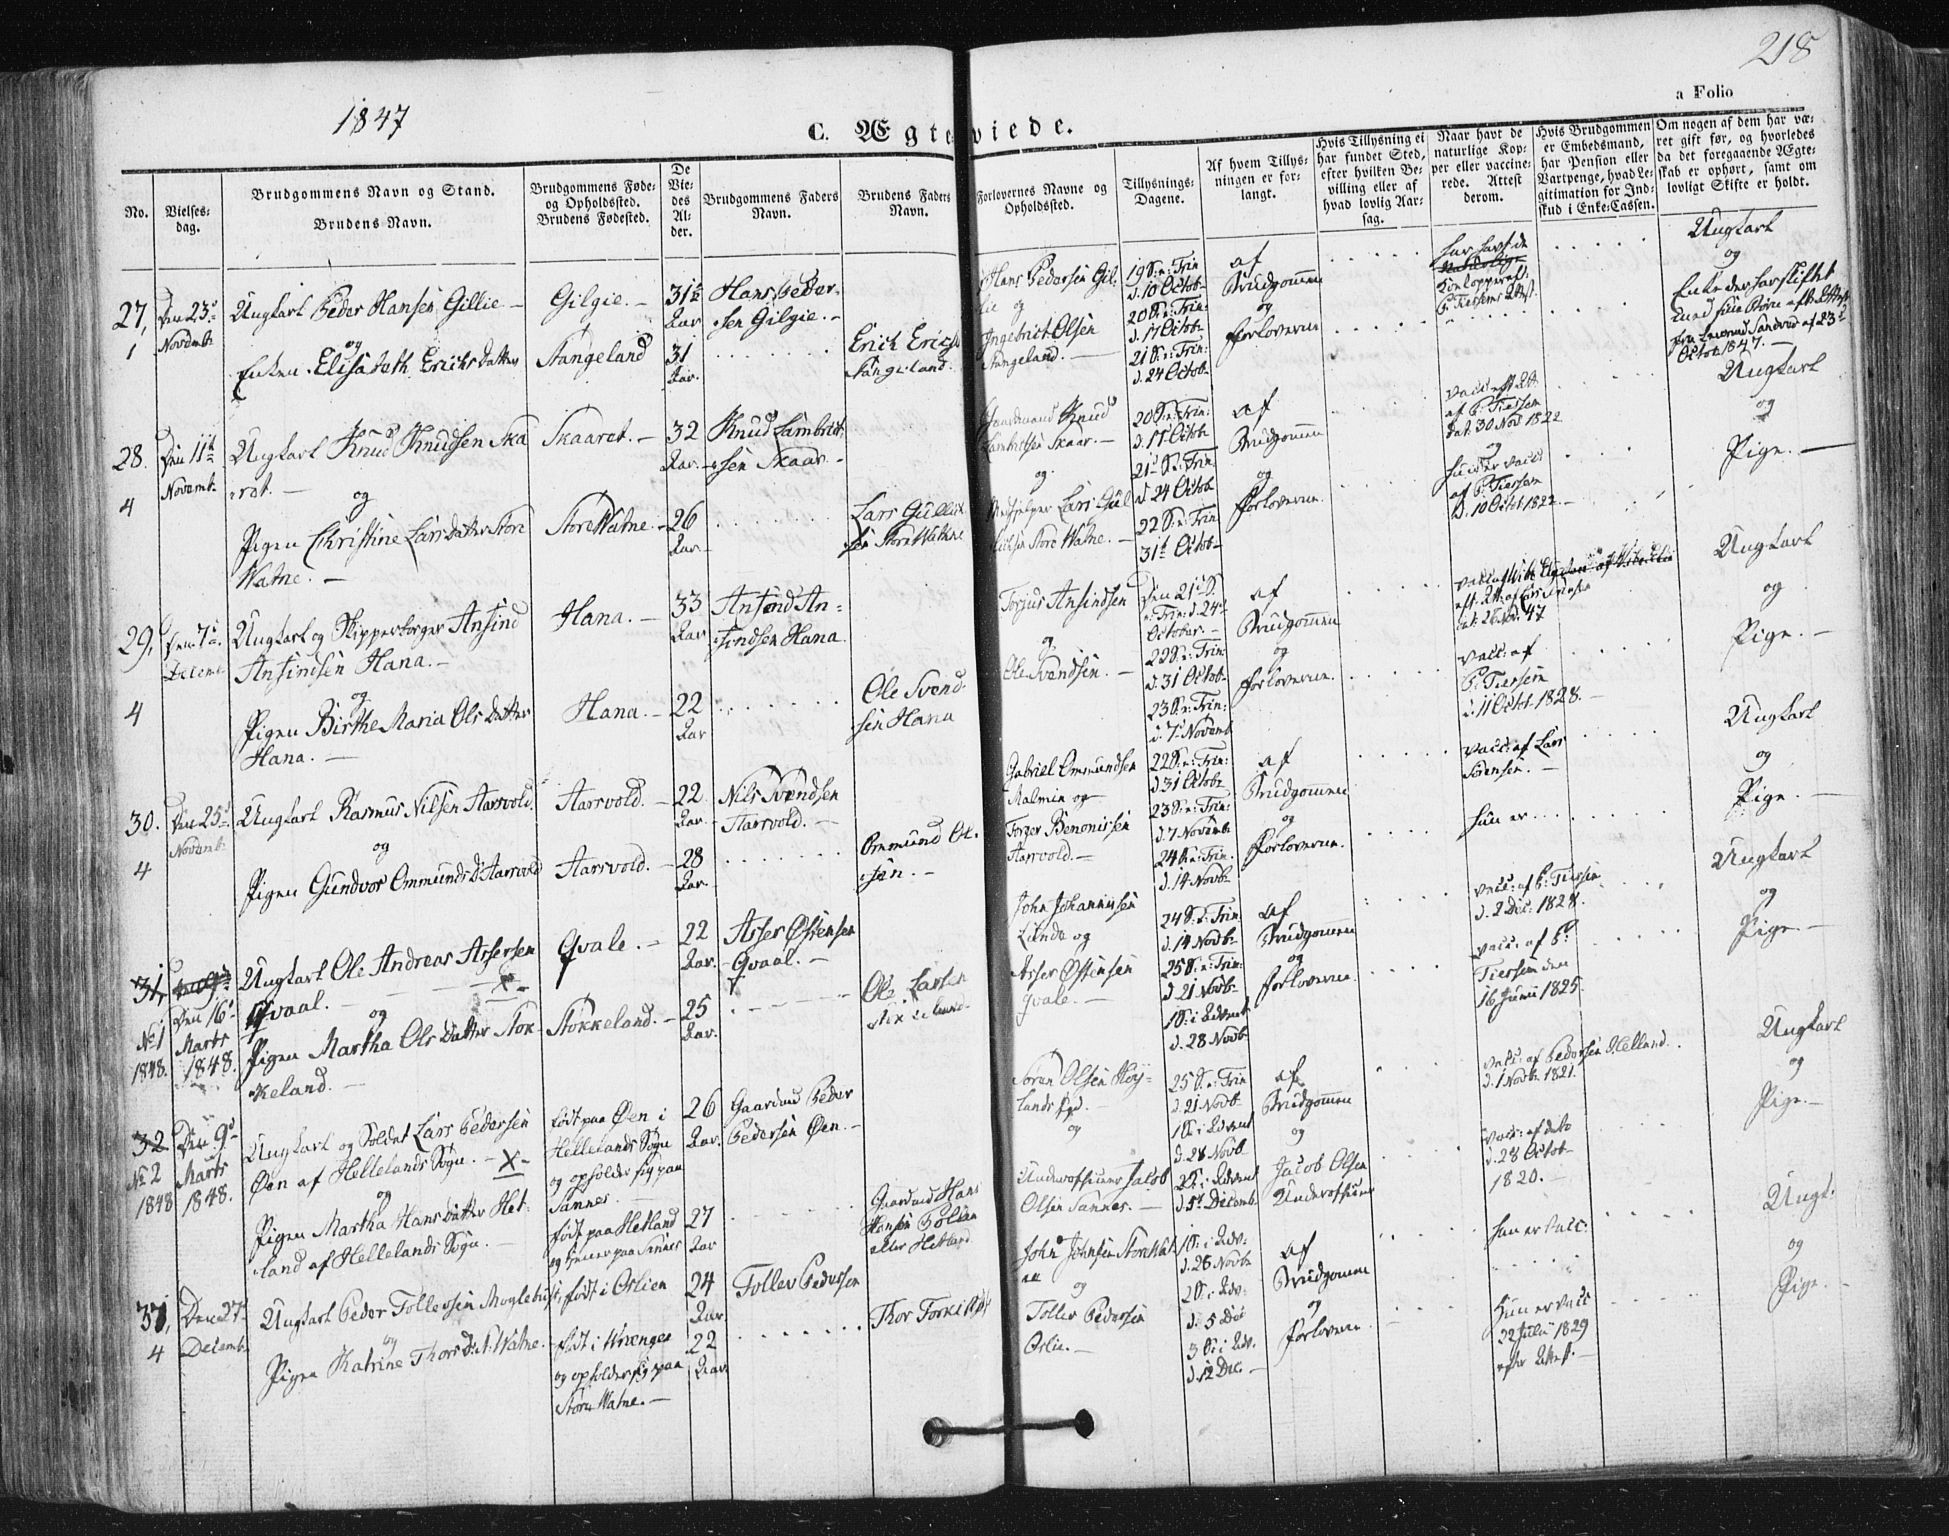 1847
218
a Folio
C. Ægteviede.
No.
Vielses-
dag.
Brudgommens Navn og Stand.
Brudens Navn.
Brudgommens Føde-
og Opholdssted.
Brudens Fødested.
De
Vie-
des
Al-
der.
Brudgommens Faders
Navn.
Brudens Faders
Navn.
Forlovernes Navne og
Opholdssted.
Tillysnings-
Dagene.
Af hvem Tillys-
ningen er for-
langt.
Hvis Tillysning ei
har fundet Sted,
efter hvilken Be-
villing eller af
hvad lovlig Aar-
sag.
Naar havt de
naturlige Kop-
per eller vaccine-
rede. Attest
derom.
Hvis Brudgommen
er Embedsmand,
har Pension eller
Vartpenge, hvad Le-
gitimation for Ind-
skud i Enke-Cassen.
Om nogen af dem har væ-
ret gift før, og hvorledes
da det foregaaende Ægte-
skab er ophørt, samt om
lovligt Skifte er holdt.
27,
1
Den 23de
Novembr
Ungkarl Peder Hansen Gillie —
og
Enken Elisabeth Erichsdatter
Gilgie. —
Stangeland
31½
Aar
31
Aar.
Hans Peder-
sen Gilgie. —
Erich Erich
Stangeland.
Hans Pedersen Gil-
lie og
Ingebret Olsen
Stangeland. —
19 S. e: Trin
d. 10 Octob-
20 S. e: Trin:
d. 17 Octob-
21 S. e: Trin:
d. 24 Octob-
af
Brudgommen
og
Forloverne
har havt de
naturlige
Ungkarl
og
Enke der har skiftet
Octob 1847. —
28.
4
Den 11te
Novemb-
Ungkarl Knud Knudsen Ska
ret. —
og
Pigen Christine Larsdatter Store
Watne. —
Skaaret. —
Store Watne. —
32
Aar. —
26
Aar —
Knud Lambret-
sen Skaar. —
Lars Gullich
sen Store Watne
Gaardmand Knud
Lambretsen Skaar. —
og
Medhjelper Lars Gul
lichsen Store Watne. —
20 S. e: Trin:
d. 17 Octob-
21 S. e: Trin
d 24 Octob
22 S. e: Trin
31te Octob-
af
Brudgommen
og
Forloverne.
af P. Tiersen
dat. 30 Nov 1822
og
hun er vacc
af P. Tiersen
d. 10 Octob 1822. —
Ungkarl
og
Pige. —
29,
4
Den 7de
Decemb
Ungkarl og Skipperborger Ansind
Ansindsen Hana. —
og
Pigen Birthe Maria Olsdatter
Hana. —
Hana. —
Hana. —
33
Aar
22
Aar
Ansind An-
sindsen Hana
Ole Svend-
sen Hana
Torjus Ansindsen
og
Ole Svendsen. —
Den 21de S.
e: Trin: d. 24de
October. —
22 S. e: Trin:
d. 31 Octob-
23 S. e: Trin:
d. 7 Novemb
af
Brudgommen
og
Forloverne.
dat: 26 Nov. 47
vacc: af
P. Tiersen
d. 11 Octob 1828. —
Ungkarl
og
Pige. —
30.
4
Den 25de
Novemb:
Ungkarl Rasmus Nilsen Aarsvold.
og
Pigen Gundvor Ommundsd: Aarsvold
Aarsvold. —
Aarsvold. —
22
Aar. —
28
Aar.
Nils Svendsen
Aarsvold. —
Ommund Ol-
sen. —
Gabriel Ommundsen
Malmin og
Torger Benonisen
Aarsvold. —
22 S. e: Trin:
d 31 Octob-
23 S. e: Trin:
d. 7 Novemb-
24 S. e: Trin.
d. 14 Novb-
af
Brudgommen
og
Forloverne.
vacc: af Lars
Sørensen. —
hun er
Ungkarl
og
Pige. —
31,
No 1
1848.
Den 16de
Marts
1848.
Ungkarl Ole Andreas Assersen
Qvaal. — X —
og
Pigen Martha Olsdatter Stok-
keland. —
Qvale. —
Stokkeland. —
22
Aar.
25
Aar.
Asser Østensen
Qvaal. —
Ole Larsen
John Johannesen
Lunde og
Asser Østensen
Qvale. —
24 S. e: Trin
d. 14 Novb-
25 S. e: Trin:
d 21 Novb-
1 S: i Advent
d. 28 Novb-
af
Brudgommen
og
Forloverne.
vacc: af P: Tiersen
d. 2 Dec: 1828.
vacc: af P:
Tiersen den
16 Junii 1825.
Ungkarl
og
Pige —
32
No 2
1848
Den 9de
Marts
1848.
Ungkarl og Soldat Lars Pedersen
Øen af Hellelands Sogn. — X —
og
Pigen Martha Hansdatter Het-
land af Hellelands Sogn. —
født paa Øen i
Hellelands Sogn
og opholder sig paa
Sannes. —
født paa Hetland
og tjener paa Sannes
26
Aar.
27
Aar
Gaardmd Peder
Pedersen Øen. —
Gaardmd Hans
Hansen
eller Hetland
Søren Olsen Høy-
land. —
og
Underofficeer Jacob
Olsen Sannes. —
25 S. e: Trin
d. 21 Novb-
1 S: i Advent
d. 28 Novb-
2 S: i Advent
d. 5te Decemb.
af
Brudgommen
og
Jacob Olsen
Underofficeer
vacc: af Pedersen Helland.
d. 1 Novb- 1821.
vacc: af dito
d. 28 Octob-
1820. —
Ungkarl
og
Pige. —
31,
4
Den 27de
Decemb.
Ungkarl Peder Tollevsen Moglebust
og
Pigen Katrine Thorsd: St: Watne. —
født i Orlien
født i
og opholder sig paa
Store Watne. —
24
Aar
22
Aar
Tollev Pedersen
Thor Torkildsen
John Johnsen Store Wat
ne
og
Tollev Pedersen
Orlie. —
1 S: i Adv:
d. 28 Novb-
2 S: i Adv:
d: 5 Dec
3 S: i Adv.
d. 12 Dec. —
af
Brudgommen
og
Forloverne. —
han er Vacc.
Hun er vacc
22 Julii 1829
efter Attest. —
Ungk:
og
Pige. —